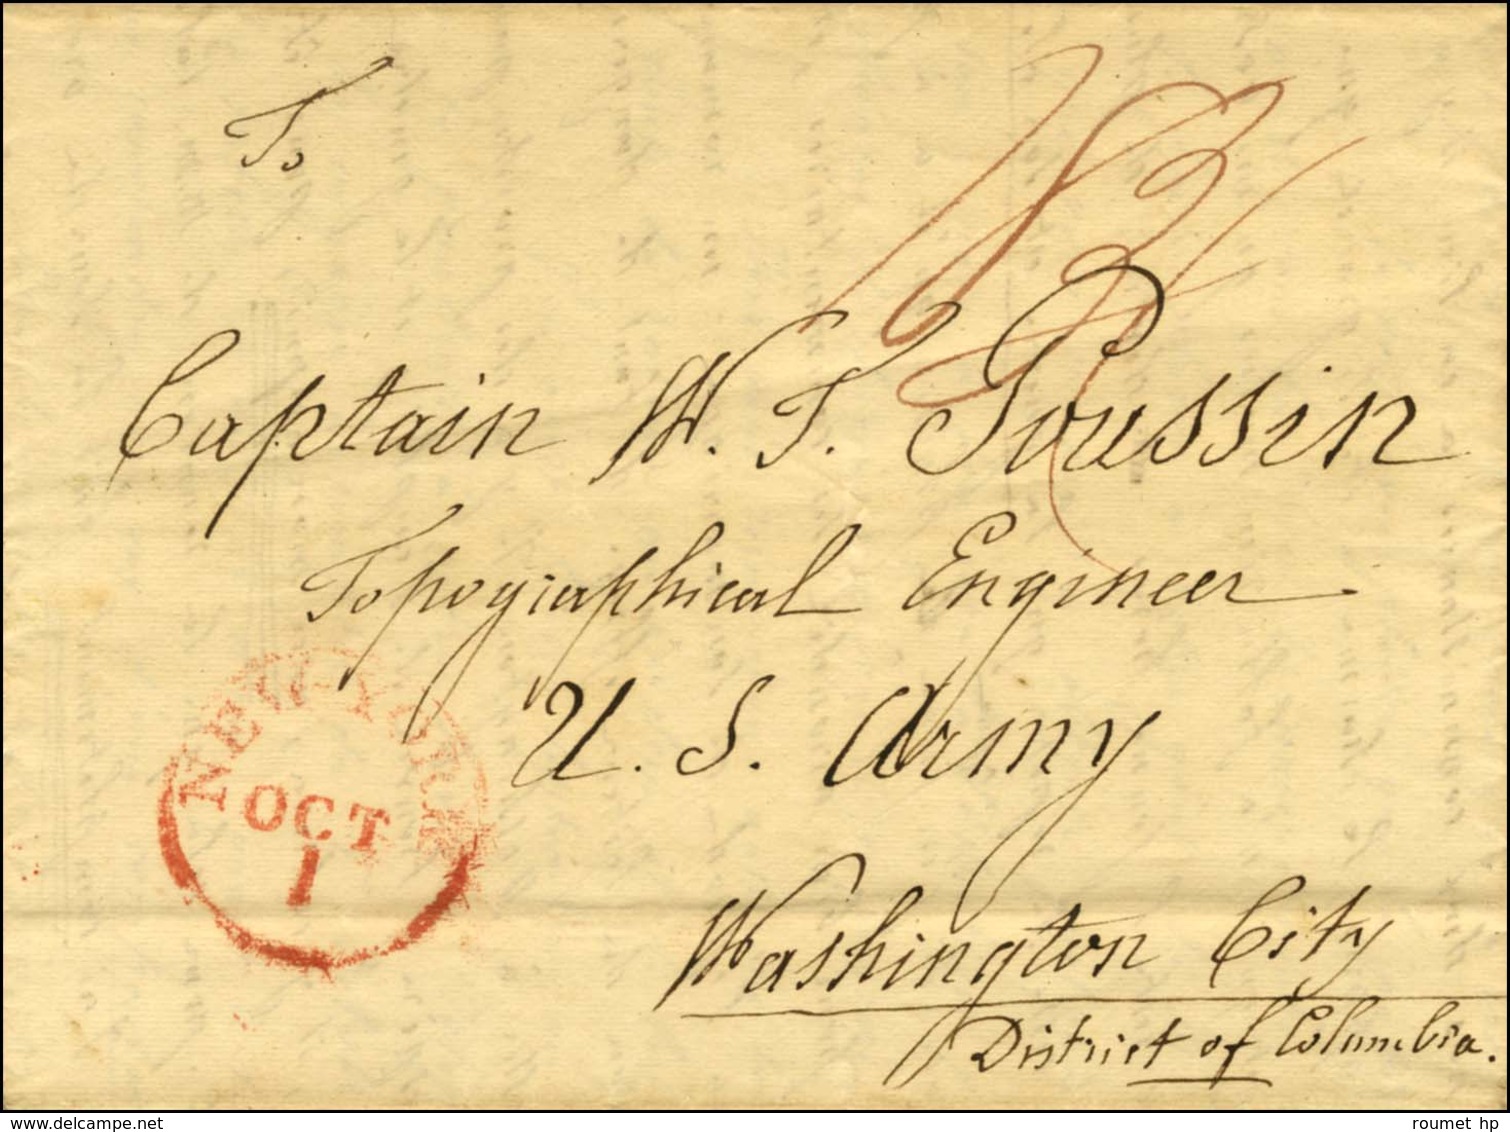 To
Captain W. T. Poussin
Topographical Engineer
U. S. Army
Washington City
District of Columbia.
NEW-YORK
OCT
1
delcampe.net
roumet hp